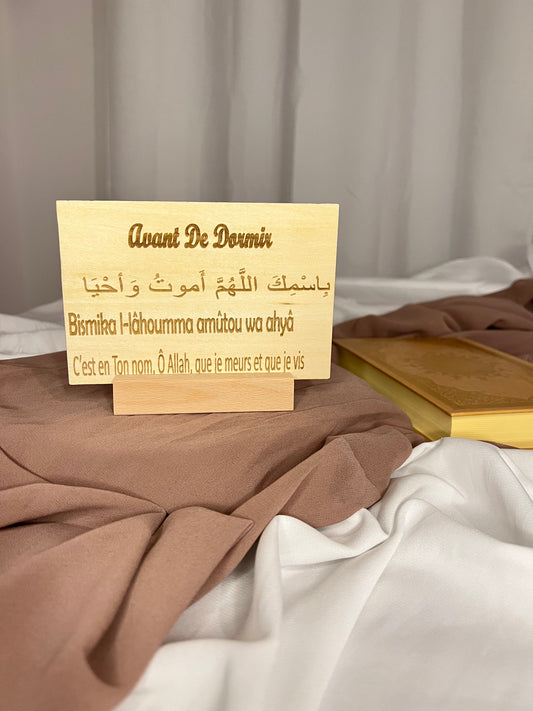 Avant De Dormir
بِاسْمِكَ اللَّهُمَّ أَموتُ وَ أحْيَا
Bismika l-lâhoumma amûtou wa ahyâ
C'est en Ton nom, Ô Allah, que je meurs et que je vis